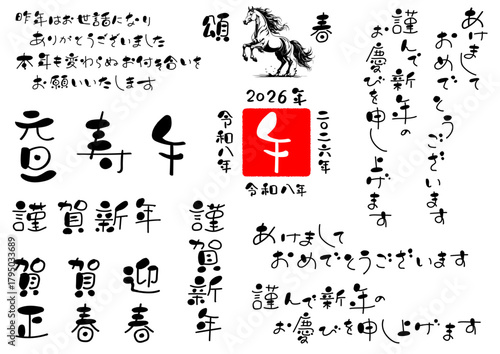 昨年はお世話になり
ありがとうございました
本年も変わらぬお付き合いを
お願いいたします
頌春
あけまして
おめでとう
ございます
謹んで新年の
お慶びを申し上げます
元旦
寿
午
2026年
令和八年
午
二〇二六年
令和八年
謹賀新年
賀正
賀春
迎春
謹賀新年
あけまして
おめでとうございます
謹んで新年の
お慶びを申し上げます
Adobe Stock | #1795033689